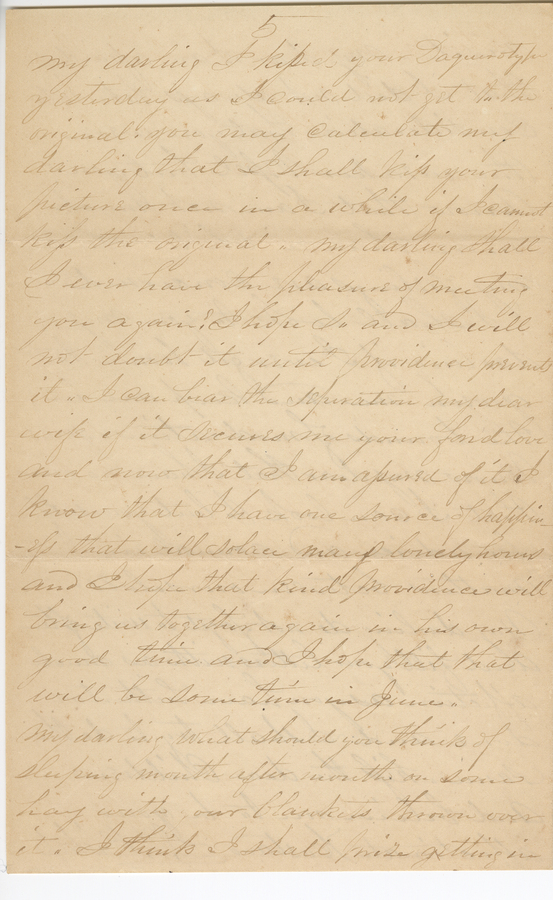 5
my darling I kissed your Daguirotype
yesterday as I could not get to the
original. you may calculate my
darling that I shall kiss your
picture once in a while if I cannot
kiss the original. my darling shall
I ever have the pleasure of meeting
you again? I hope so and I will
not doubt it until Providence prevents
it. I can bear the seperation my dear
wife if it secures me your fond love
and now that I am assured of it I
know that I have one source of happin
-ess that will solace many lonely hours
and I hope that kind Providence will
bring us together again in his own
good time and I hope that that
will be some time in June.
my darling what should you think of
sleeping month after month on some
hay with our blankets thrown over
it. I think I shall prize getting in